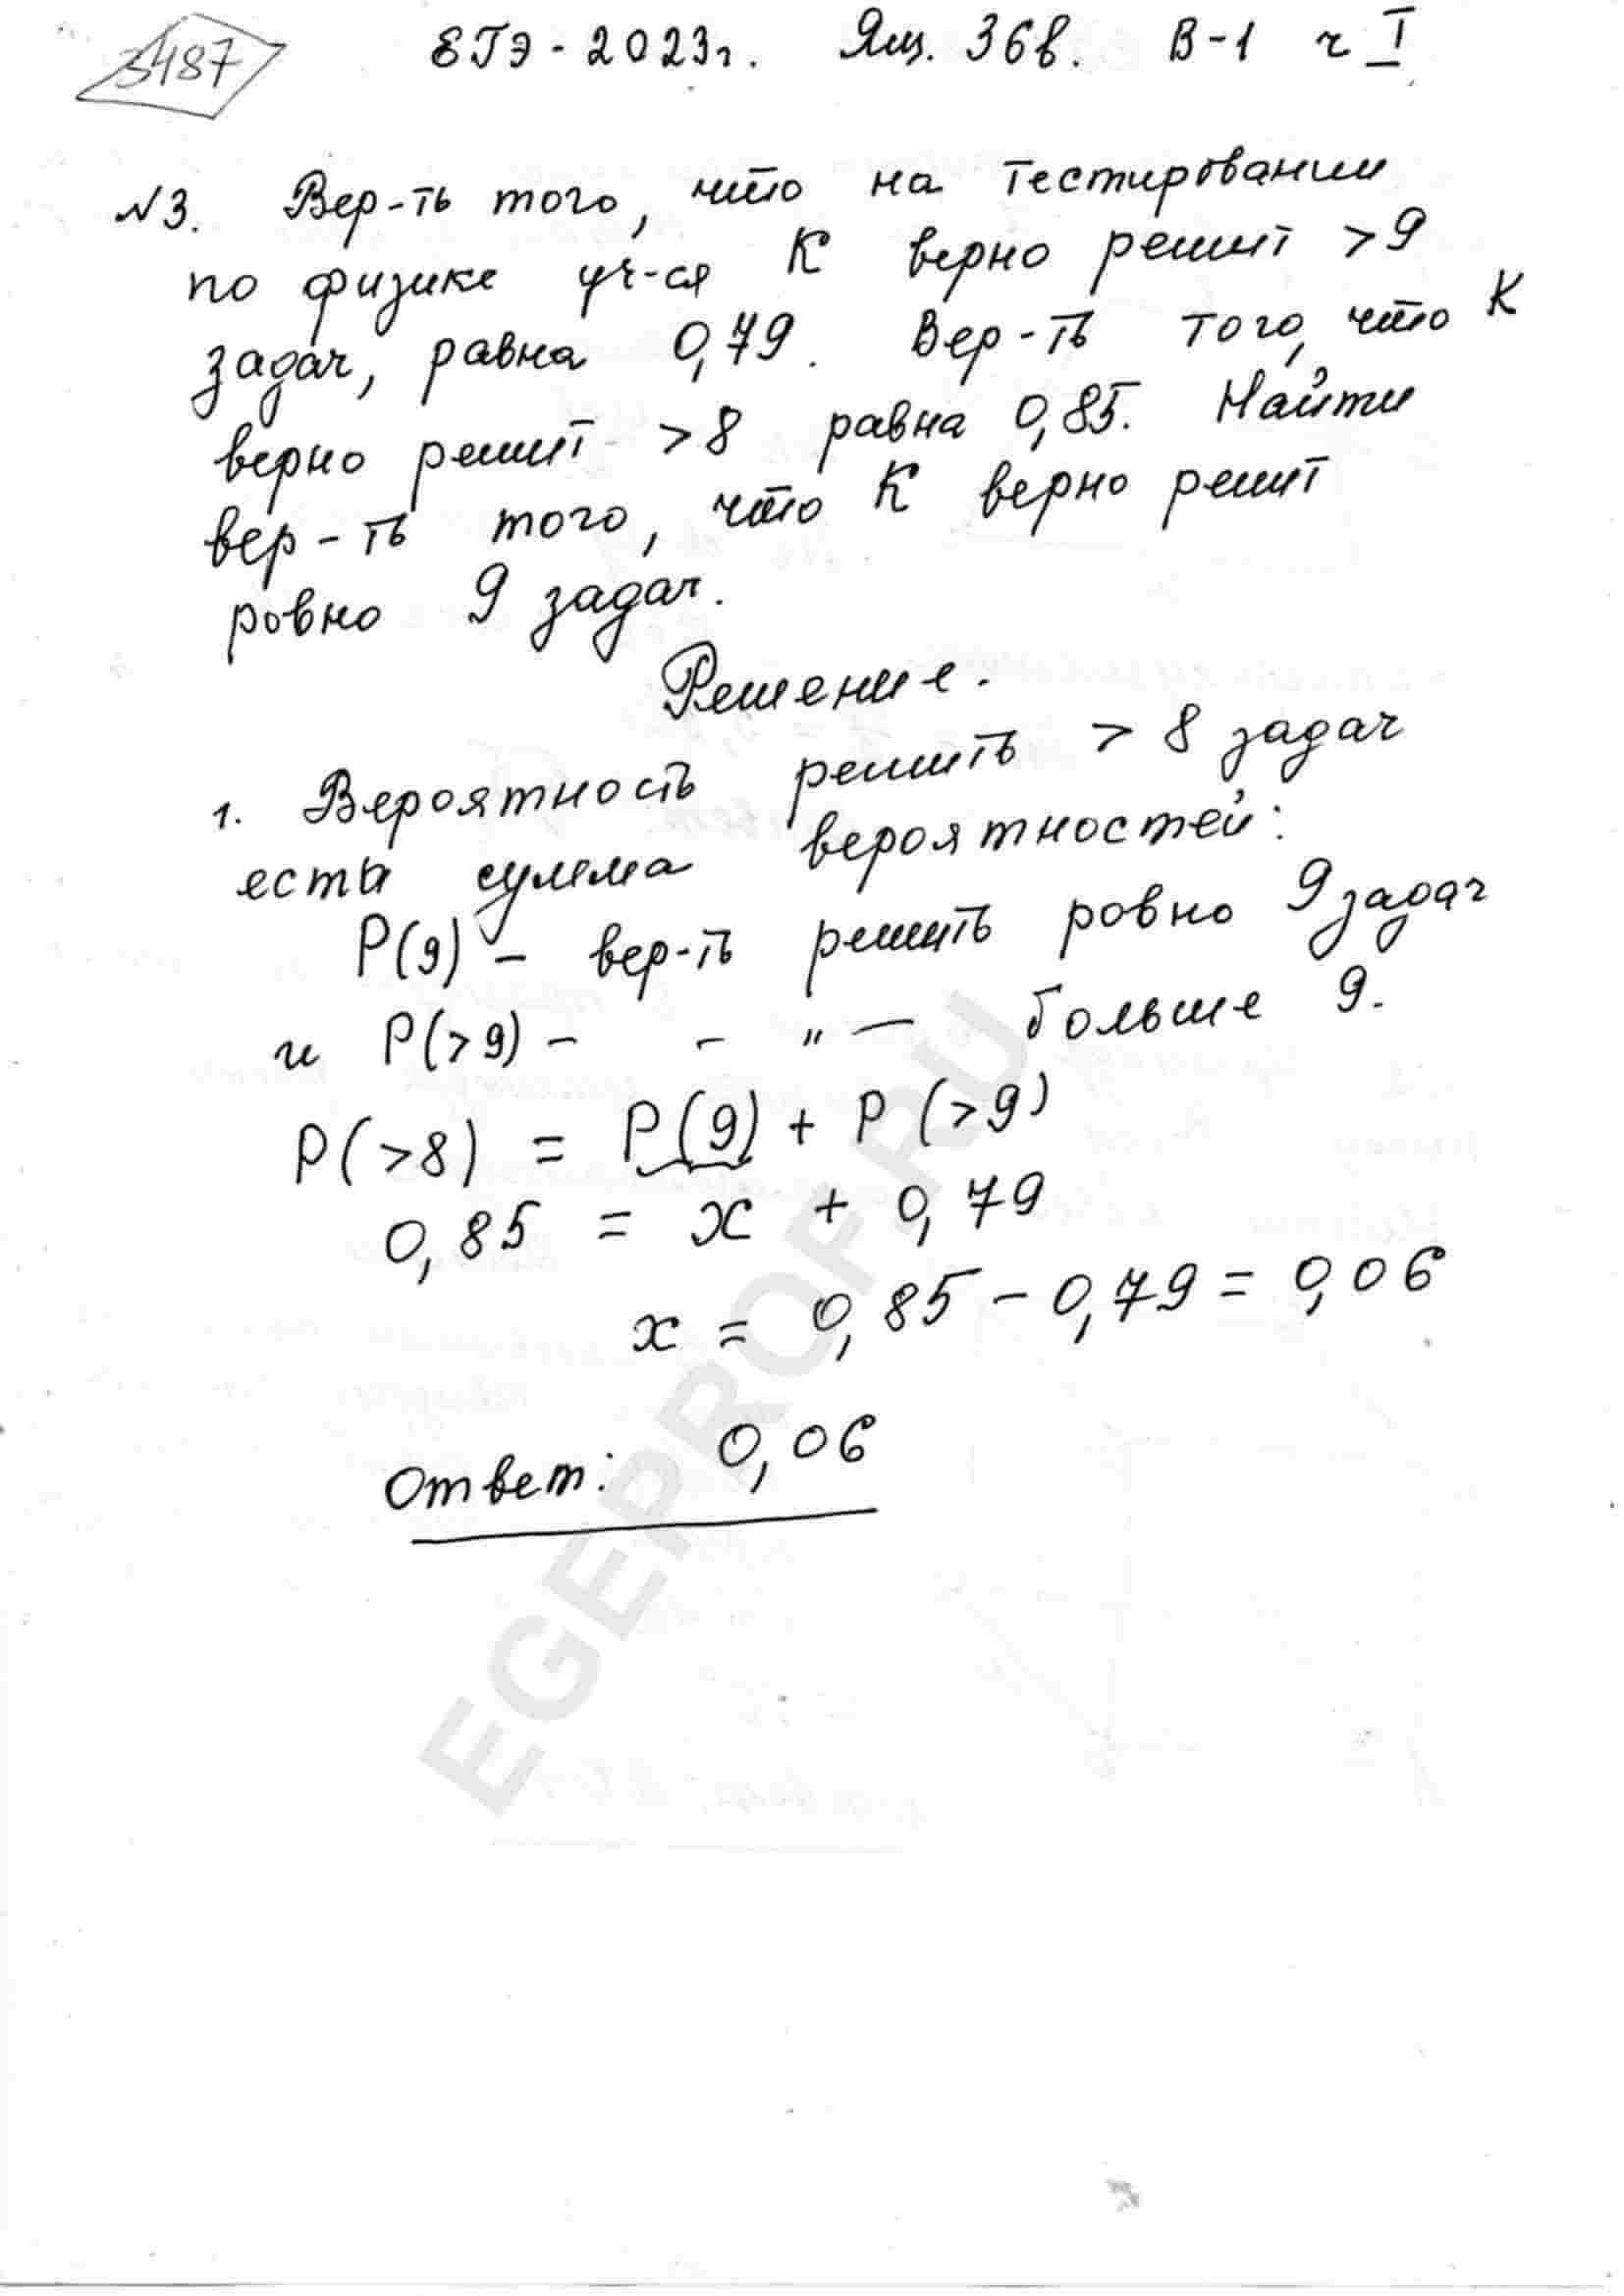 3487
ЕГЭ-2023г. Ящ. 36в. В-1 ч I
№3. Вер-ть того, что на тестировании
по физике уч-ся К верно решит >9
задач, равна 0,79. Вер-ть того, что К
верно решит >8 равна 0,85. Найти
вер-ть того, что К верно решит
ровно 9 задач.
Решение.
1. Вероятность решить > 8 задач
есть сумма вероятностей:
P(9) - вер-ть решить ровно 9 задач
и P(>9) - - " - больше 9.
P(>8) = P(9) + P(>9)
0,85 = x + 0,79
x = 0,85 - 0,79 = 0,06
Ответ: 0,06
EGEPROF.RU